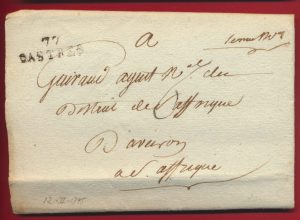 77
CASTRES
a
Guiraud agent N.al du
District de S.t affrique
Daveiron
a S.t affrique